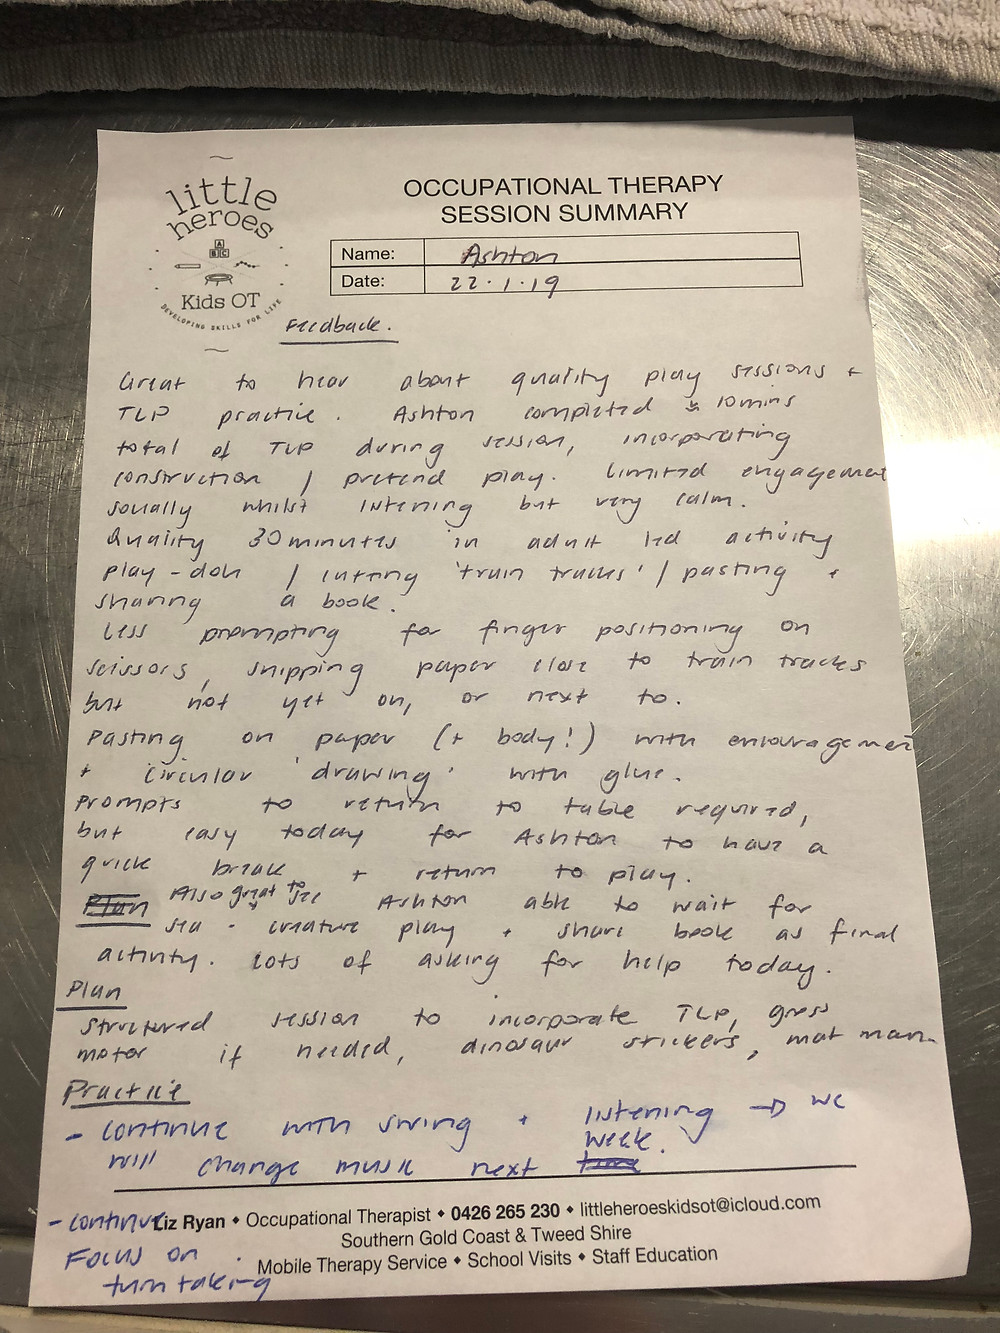 little
heroes
A
B C
Kids OT
DEVELOPING SKILLS FOR LIFE
OCCUPATIONAL THERAPY
SESSION SUMMARY
Name: Ashton
Date: 22.1.19
Feedback.
Great to hear about quality play sessions +
TLP practice. Ashton completed 10mins
total of TLP during session, incorporating
construction / pretend play. Limited engagement
socially whilst listening but very calm.
Quality 30minutes in adult led activity
play-doh / cutting 'train tracks' / pasting +
sharing a book.
Less prompting for finger positioning on
scissors, snipping paper close to train tracks
but not yet on, or next to.
Pasting on paper (+ body!) with encouragement
+ circular 'drawing' with glue.
Prompts to return to table required,
but easy today for Ashton to have a
quick break + return to play.
Also great to see Ashton able to wait for
sea-creature play + share book as final
activity. Lots of asking for help today.
Plan
Structured session to incorporate TLP, gross
motor if needed, dinosaur stickers, mat man.
Practice
- continue with swing + listening → we
will change music next week.
- continue
Focus on
turn taking
Liz Ryan • Occupational Therapist • 0426 265 230 • littleheroeskidsot@icloud.com
Southern Gold Coast & Tweed Shire
Mobile Therapy Service • School Visits • Staff Education